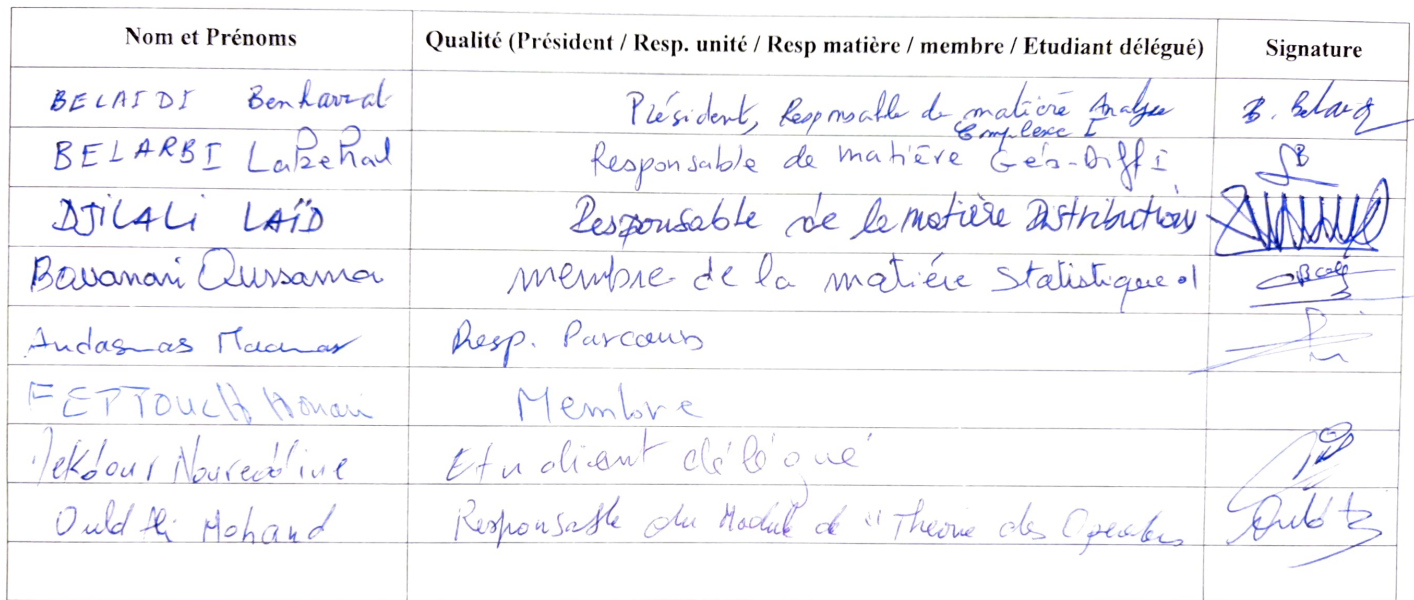 Nom et Prénoms Qualité (Président / Resp. unité / Resp matière / membre / Etudiant délégué) Signature
BELAIDI Benharrat Président, Responsable de matière Analyse
Complexe I
BELARBI Lakehal Responsable de matière Géo-Diff I
DJILALI LAÏD Responsable de la matière Distributions
Oussama membre de la matière Statistique 1
Andasmas Maamar Resp. Parcours
FETTOUCH Houari Membre
Noureddine Etudiant délégué
Ould Ali Mohand Responsable du Module de "Theorie des